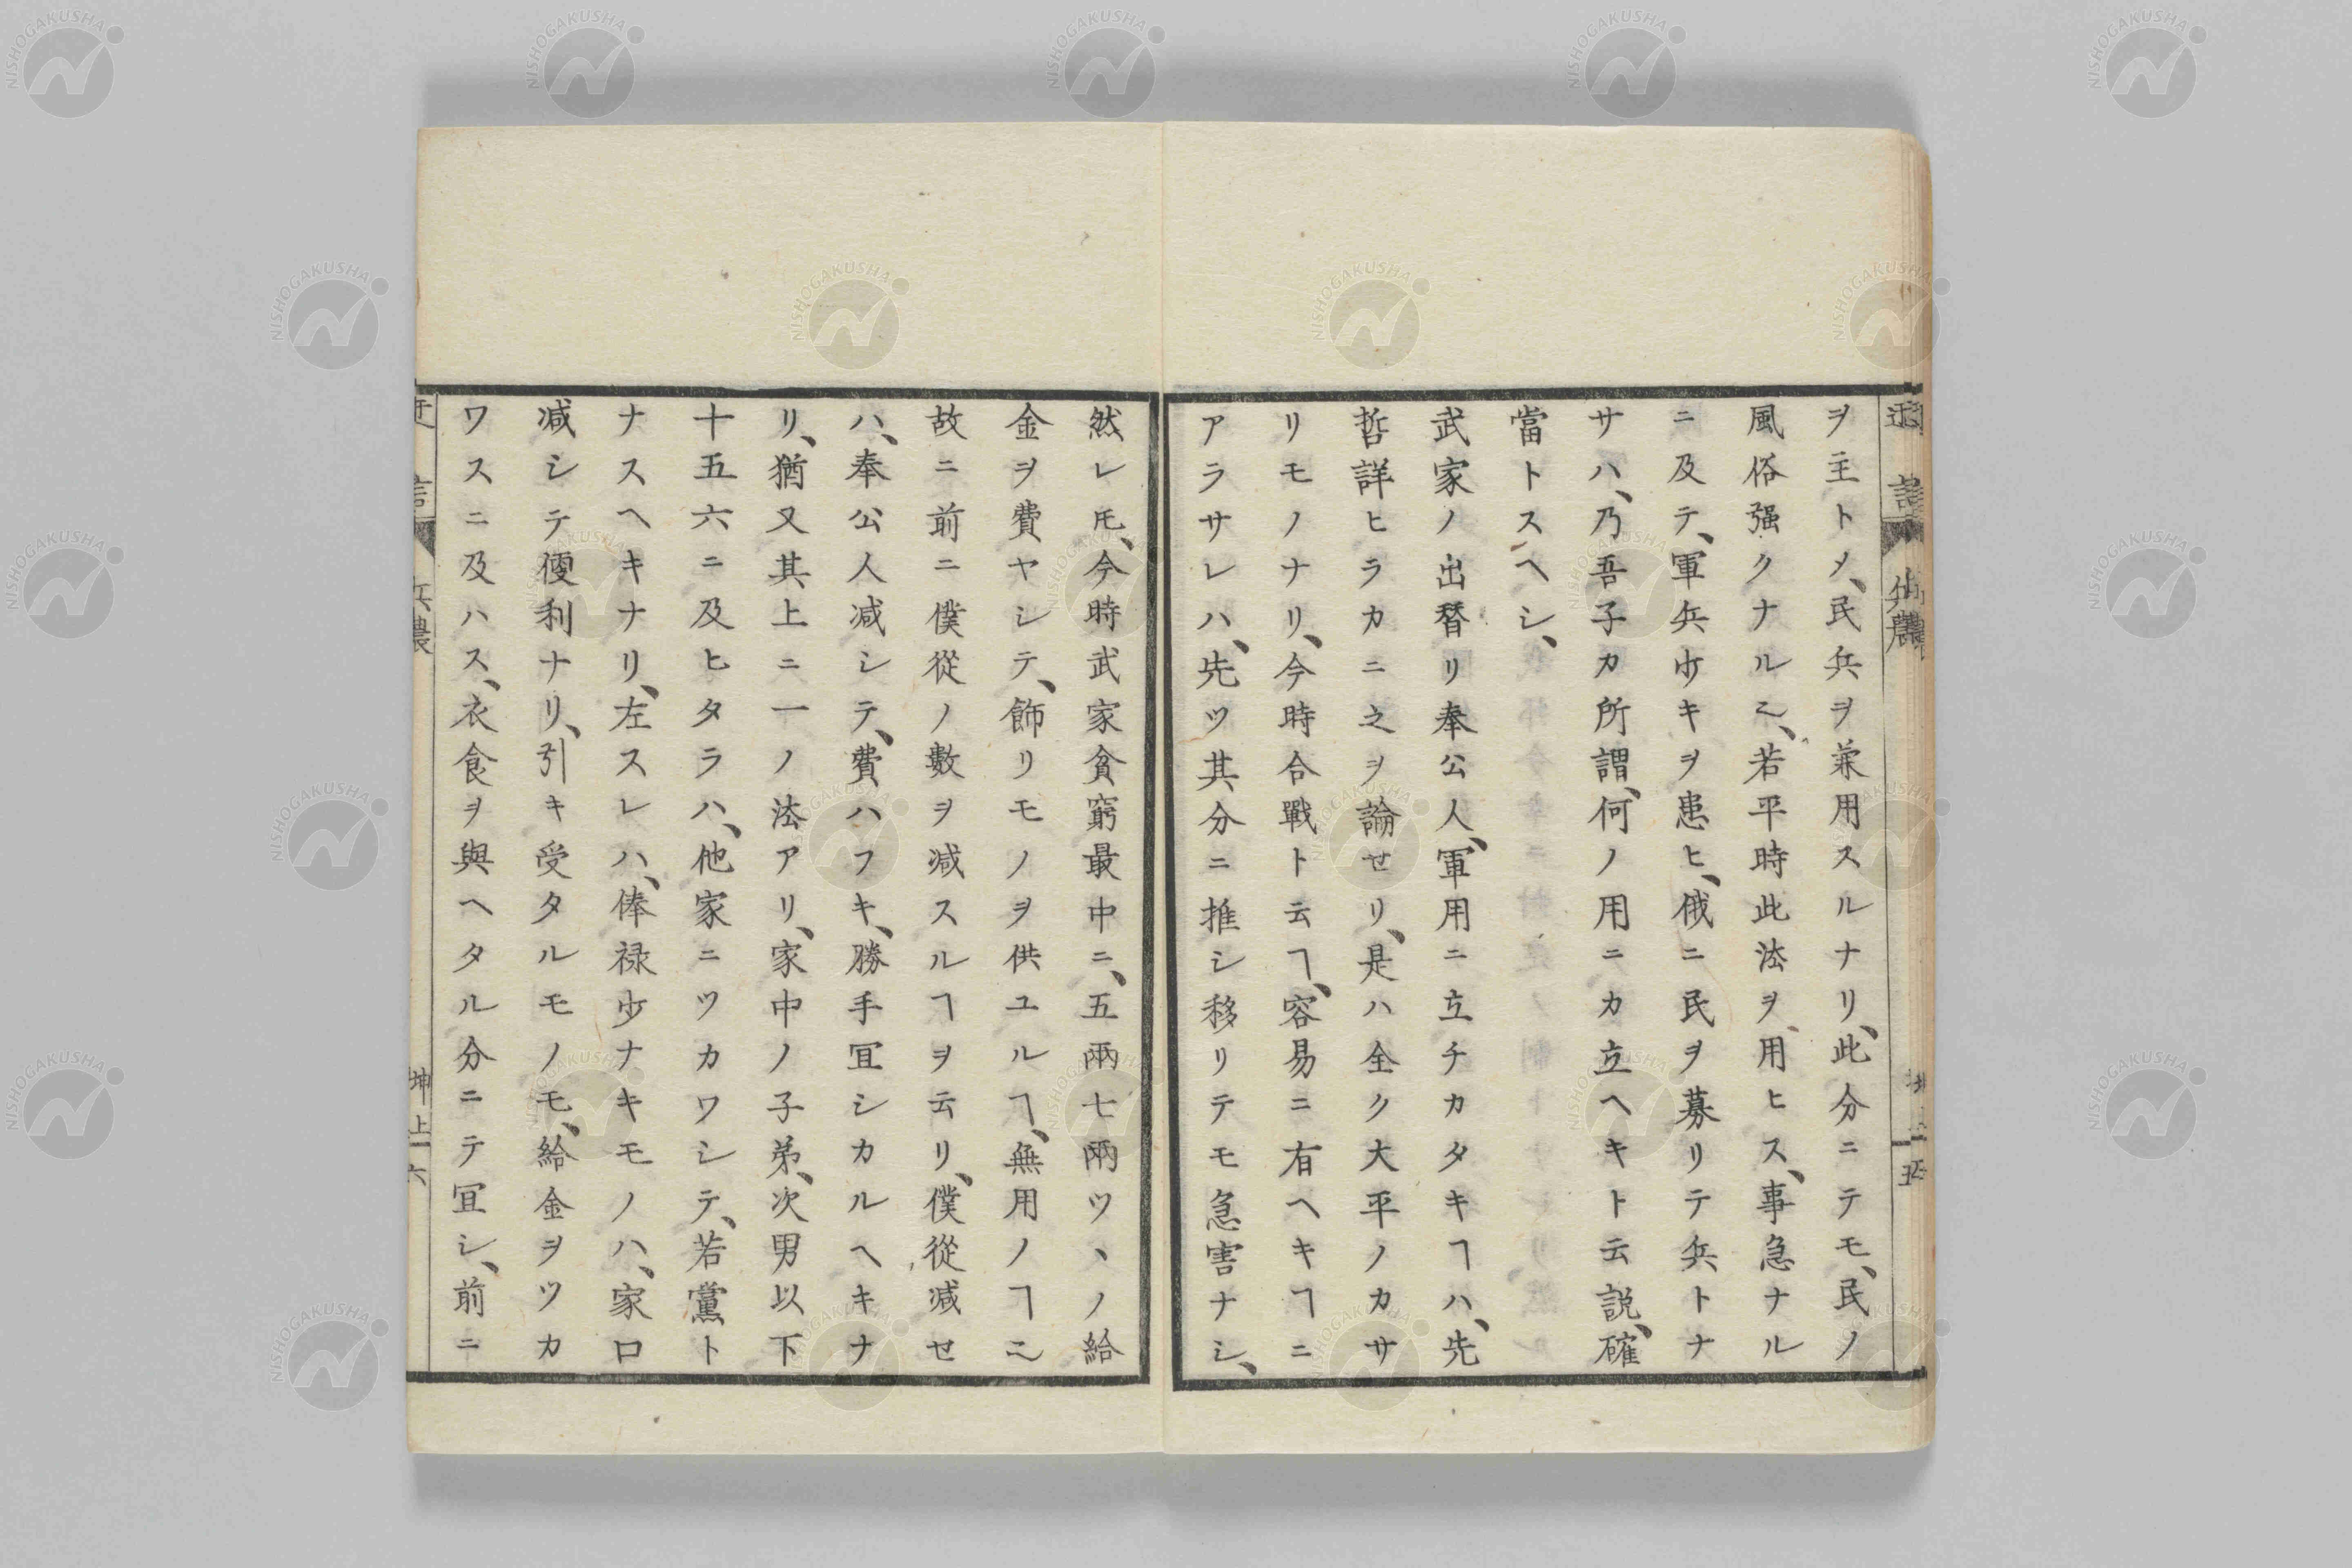 ヲ主トメ、民兵ヲ兼用スルナリ、此分ニテモ、民ノ
風俗强クナルヿ、若平時此法ヲ、用ヒス、事急ナル
ニ及テ、軍兵少キヲ患ヒ、俄ニ民ヲ募リテ兵トナ
サハ、乃吾子カ所謂、何ノ用ニカ立ヘキト云説、確
當トスヘシ、
武家ノ出替リ奉公人、軍用ニ立チカタキヿハ、先
哲詳ヒラカニ之ヲ論せリ、是ハ全ク大平ノカサ
リモノナリ、今時合戰ト云ヿ、容易ニ有ヘキヿニ
アラサレハ、先ツ其分ニ推シ移リテモ急害ナシ、
然レ𪜈、今時武家貧窮最中ニ、五兩七兩ツヽノ給
金ヲ費ヤシテ、飾リモノヲ供ユルヿ、無用ノヿ也
故ニ前ニ僕從ノ數ヲ减スルヿヲ云リ、僕從减せ
ハ、奉公人减シテ、費ハフキ、勝手冝シカルヘキナ
リ、猶又其上ニ一ノ法アリ、家中ノ子弟、次男以下
十五六ニ及ヒタラハ、他家ニツカワシテ、若黨ト
ナスヘキナリ、左スレハ、俸禄少ナキモノハ、家口
减シテ便利ナリ、引キ受タルモノモ、給金ヲツカ
ワスニ及ハス、衣食ヲ與ヘタル分ニテ冝シ、前ニ
兵農
坤上
六